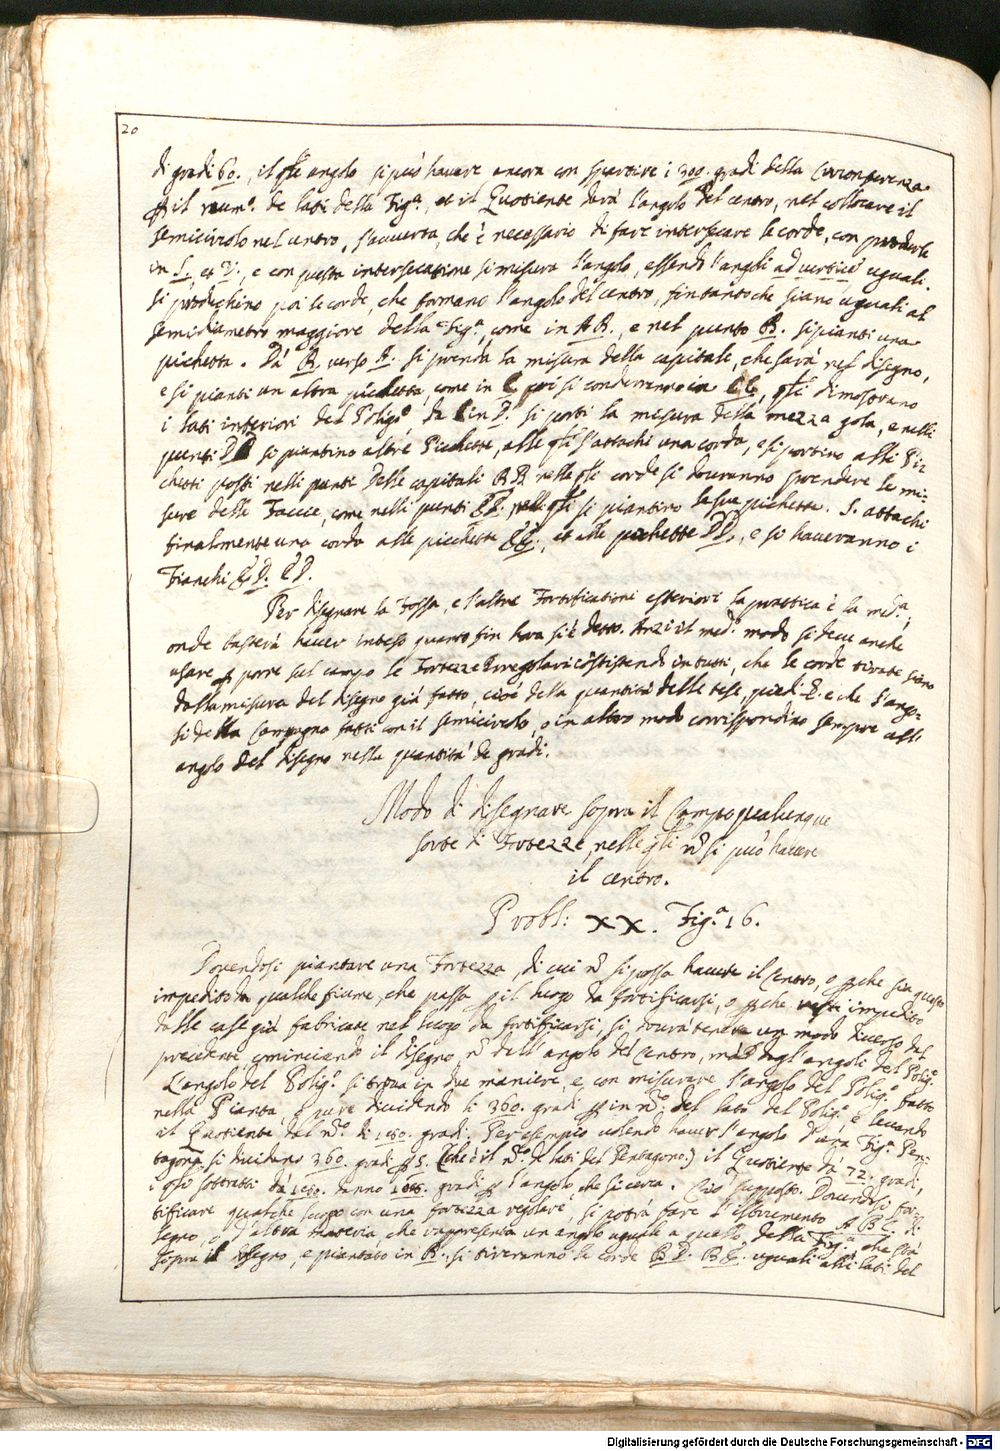 20
di gradi 60., il qle angolo si può havere ancora con spartire i 360. gradi della Circonferenza
p il num.º de lati della Fig.ª, et il Quotiente darà l'angolo del centro, nel collocare il
semicircolo nel centro, s'avverta, che è necessario di fare intersecare le corde, con produrle
in S. et V., e con questa intersecatione si misura l'angolo, essendo l'angoli ad vertice uguali.
Si produchino poi le corde, che formano l'angolo del centro, fintanto che siano uguali al
semidiametro maggiore della Fig.ª, come in A B., e nel punto B. si pianti una
picchetta. Dà B. verso A. si prenda la misura della capitale, che sarà nel disegno,
e si pianti un altra picchetta, come in C. poi si conderranno in CC, qli dimostrano
i lati interiori del Polig.º, da C in D. si porti la misura della mezza gola, e nelli
punti DD si piantino altre Picchette, alle qli s'attachi una corda, e si portino alli Pic
chetti posti nelli punti delle capitali BB nelle qli corde si dovranno prendere le mi=
sure delle Faccie, come nelli punti EE. nelli qli si piantino le sue picchette. S'attachi
finalmente una corda alle picchette EE., et alle picchette DD., e si haveranno i
Fianchi E D. E D.
Per disegnare la Fossa, e l'altre Fortificationi esteriori la prattica è la med.ª,
onde basterà haver inteso quanto fin hora si è detto. Anzi il med.º modo si deve anche
usare p porre sul campo le Fortezze Irregolari cõsistendo in tutti, che le corde tirate siano
dalla misura del disegno già fatto, cioè della quantità delle tese, piedi & e che l'ango=
li della Campagna fatti con il semicircolo, o in altro modo corrispondino sempre all'
angolo del disegno nella quantità de gradi.
Modo di disegnare sopra il Campo qualunque
sorte di Fortezze, nelle qli nõ si può havere
il centro.
Probl: XX. Fig.ª 16.
Dovendosi piantare una Fortezza, di cui nõ si possa havere il Centro, o pche sia questo
impedito da qualche fiume, che passa p il luogo da fortificarsi, o pche resti impedito
dalle case già fabricate nel luogo da fortificarsi, si dovrà tenere un modo diverso dal
precedente cominciando il disegno, nõ dall'angolo del Centro, mà dagl'angoli del Polig.º
L'angolo del Polig.º si trova in due maniere, e, con misurare l'angolo del Polig.º fatto
nella Pianta, o pure dividendo li 360. gradi p in nº. del lato del Polig.º, e levando
il Quotiente dal nº. di 180. gradi. Per esempio volendo haver l'angolo d'una Fig.ª Pen=
tagona si dividano 360. gradi p 5. (che è il nº. de lati del Pentagono:) il Quotiente dà 72. gradi,
i qli sottratti da 180. danno 108. gradi p l'angolo, che si cerca. Ciò supposto. Dovendosi for=
tificare qualche luogo con una fortezza regolare, si potrà fare l'istrumento A B C di
legno, o d'altra materia, che rappresenta un angolo uguale a quello della Fig.ª che sia
sopra il disegno, e piantato in B. si tireranno le corde B D. B E. uguali alli lati del
Digitalisierung gefördert durch die Deutsche Forschungsgemeinschaft - DFG